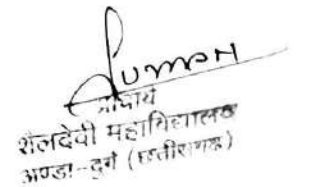 Suman
प्राचार्य
शैलदेवी महाविद्यालय
अण्डा-दुर्ग (छत्तीसगढ़)